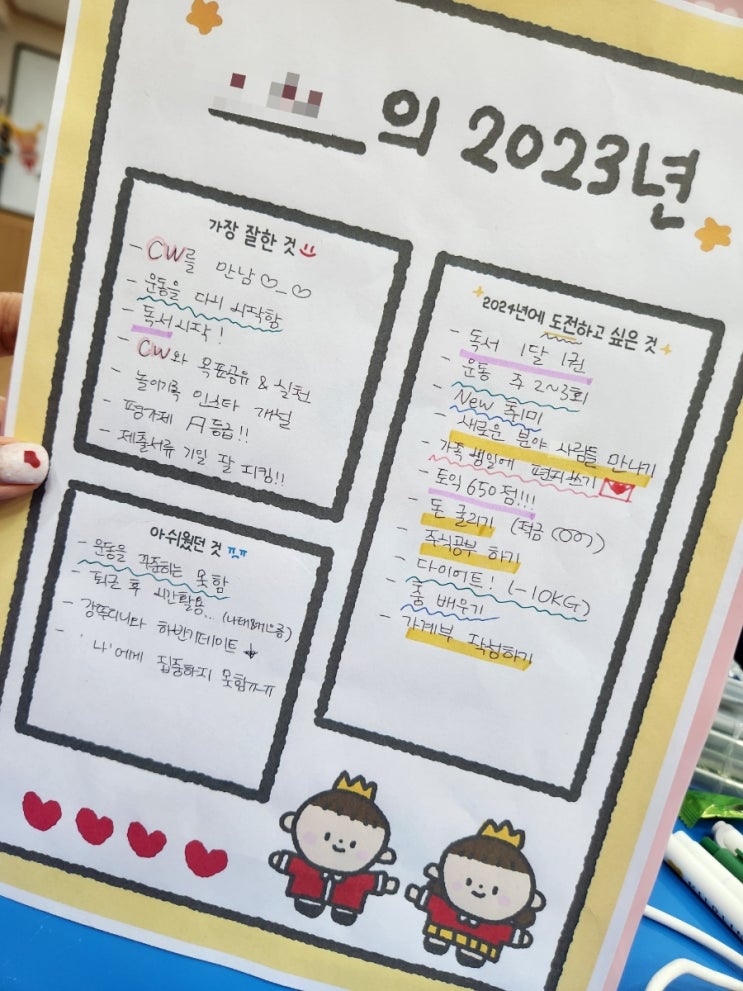 의 2023년
가장 잘한 것
- CW를 만남 ♡_♡
- 운동을 다시 시작함
- 독서시작!
- CW와 목표공유 & 실천
- 놀이기록 인스타 개설
- 평가제 A등급!!
- 제출서류 기일 잘 지킴!!
아쉬웠던 것 ㅠㅠ
- 운동을 꾸준히는 못함
- 퇴근 후 시간활용...
- 강쭈디니와 하반기데이트 ↓
- '나'에게 집중하지 못함ㅠㅠ
2024년에 도전하고 싶은 것
- 독서 1달 1권
- 운동 주 2~3회
- New 취미
- 새로운 분야 사람들 만나기
- 가족 생일에 편지쓰기
- 토익 650점!!!
- 돈 굴리기 (적금
- 주식공부 하기
- 다이어트! (-10KG)
- 춤 배우기
- 가계부 작성하기